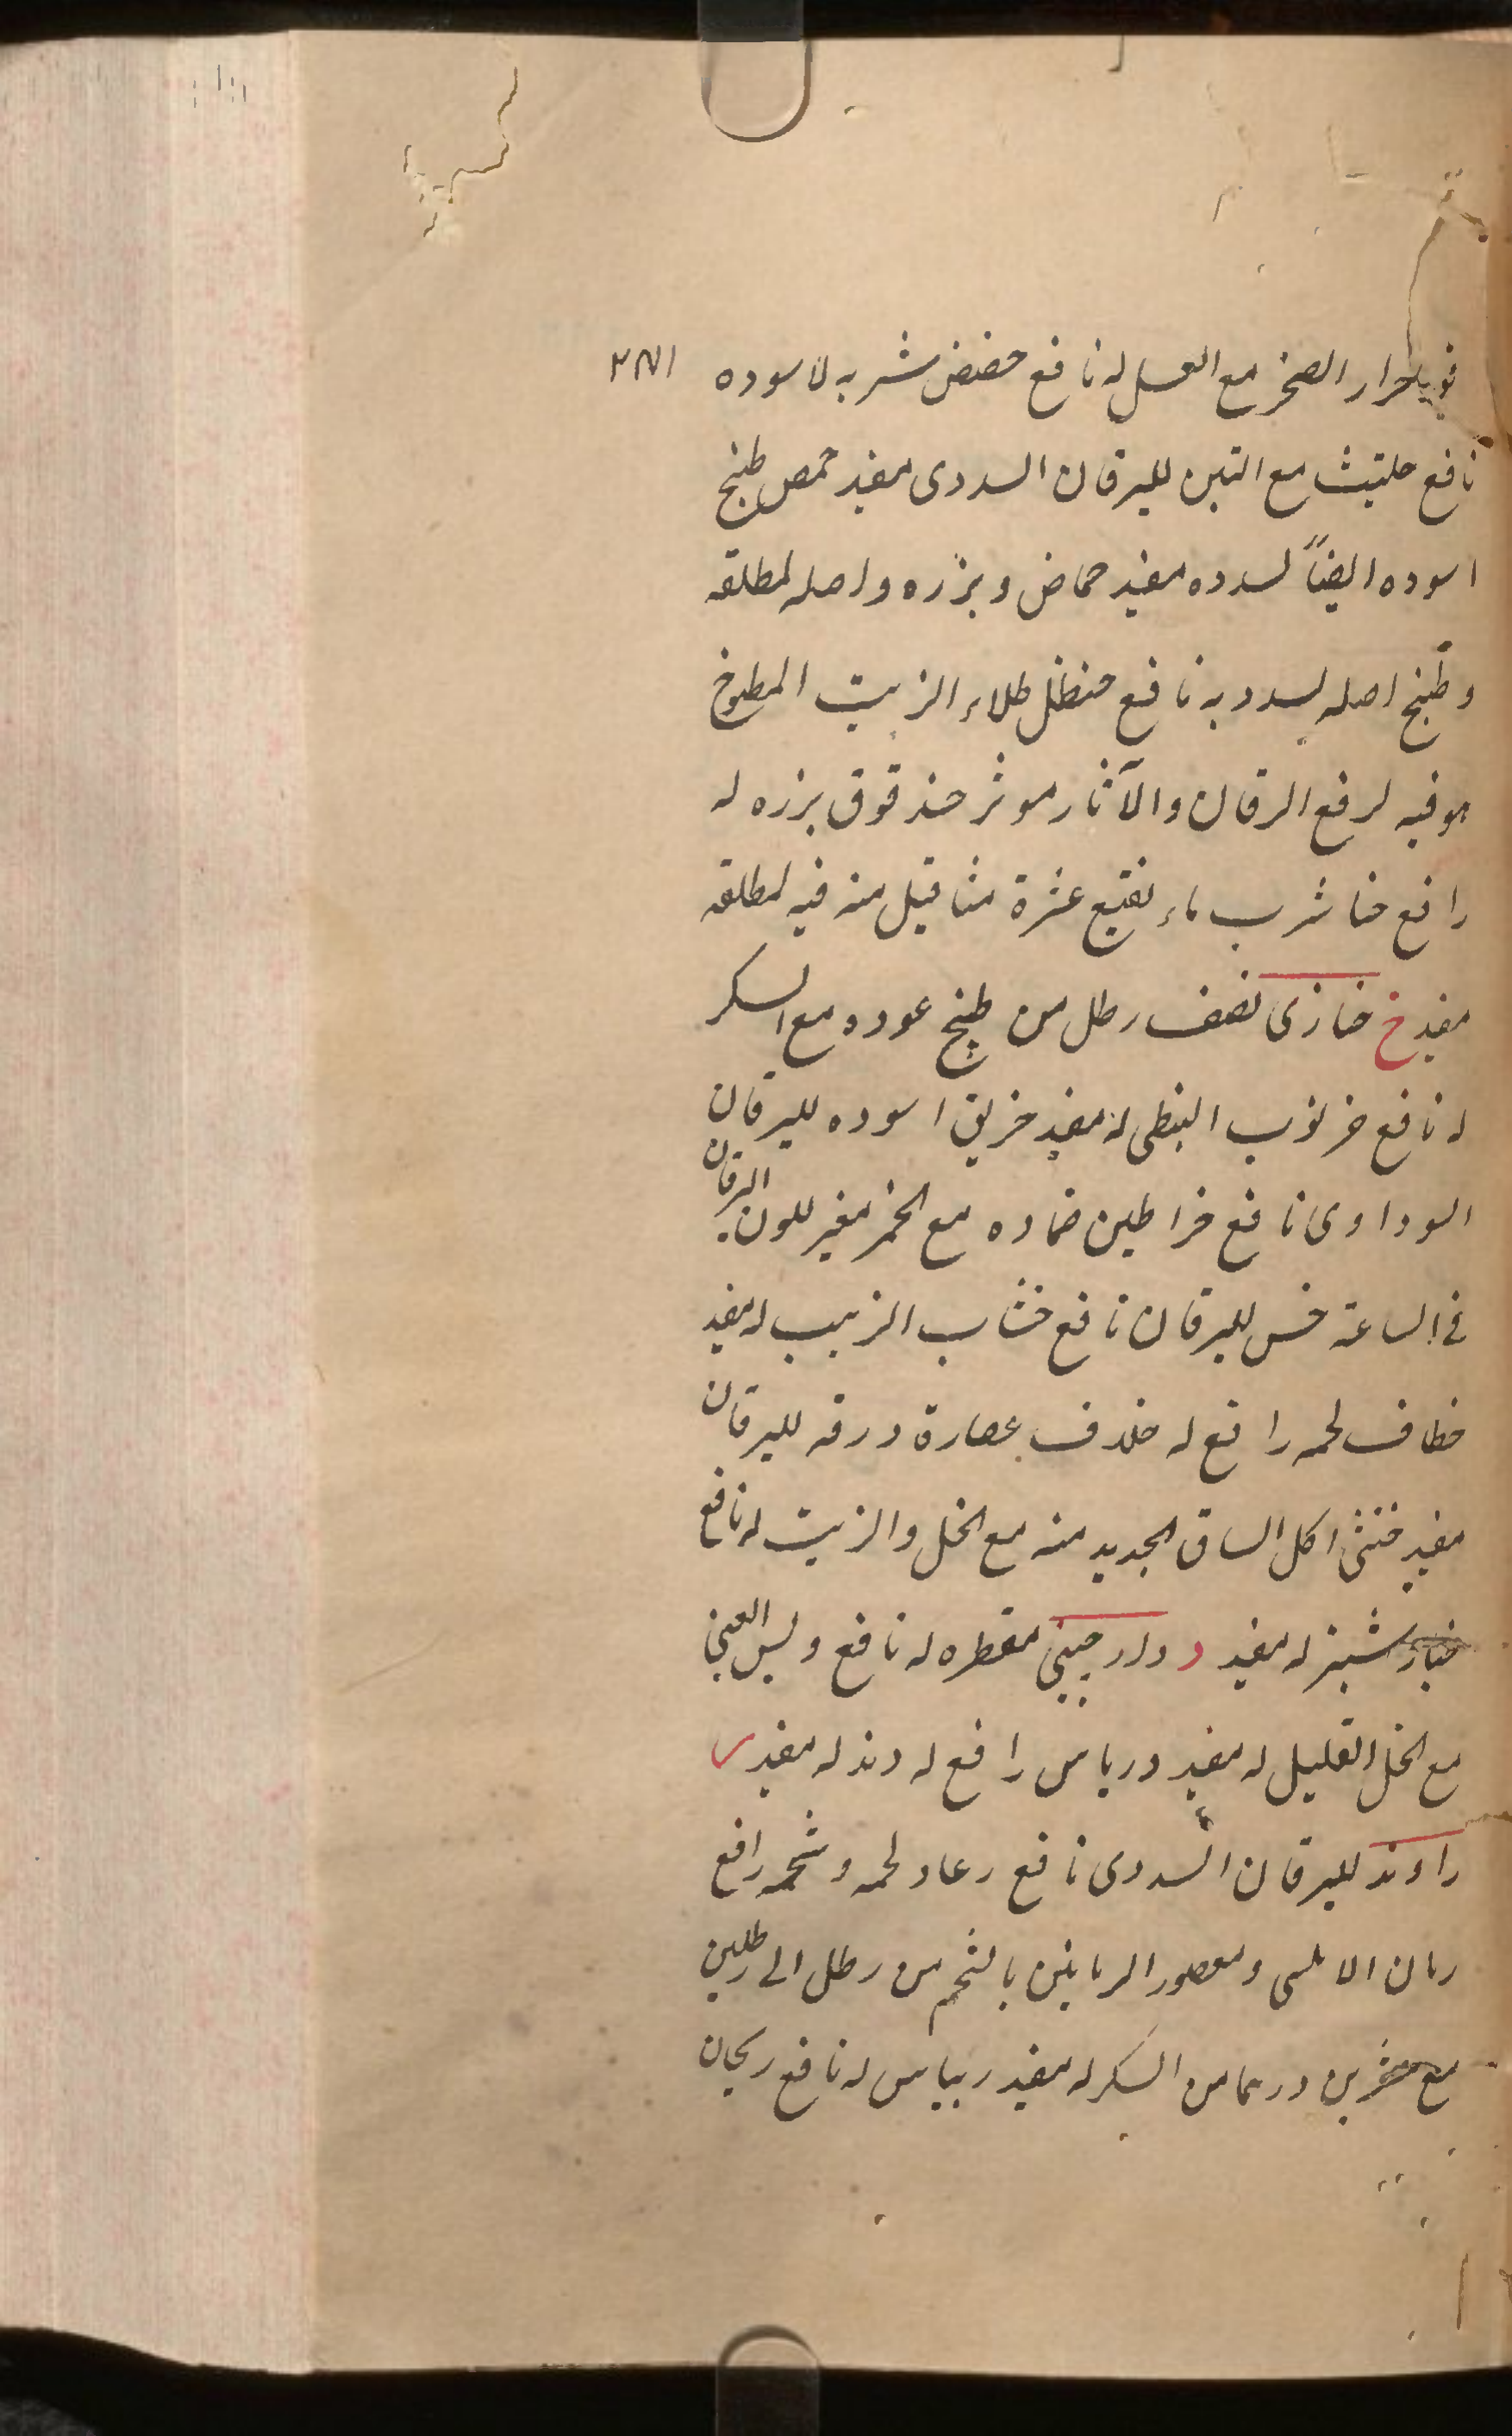 حرار الصخر مع العسل له نافع حضض شربه لاسوده
نافع حلتيث مع التين لليرقان السددى مفيد حمص طبخ
اسوده ايضاً لسدده مفيد حماض وبزره واصله لمطلقه
وطبخ اصله لسدديه نافع حنظل طلاء الزيت المطبوخ
هو فيه لرفع اليرقان والآثار موثر حندقوق بزره له
رافع حنا شرب ماء نقيع عشرة مثاقيل منه فيه لمطلقه
مفيد خ خبازى نصف رطل من طبخ عوده مع السكر
له نافع خرنوب النبطى له مفيد خربق اسوده لليرقان
السوداوى نافع خراطين ضماده مع الخمر مغير للون اليرقان
فى الساعة خس لليرقان نافع خشاب الزبيب له مفيد
خطاف لحمه رافع له خلاف عصارة ورقه لليرقان
مفيد خنثى اكل الساق الجديد منه مع الخل والزيت له نافع
خيارشنبر له مفيد د دارچينى مقطره له نافع ولبس العينى
مع الخل القليل له مفيد درياس رافع له دند له مفيد ر
راوند لليرقان السددى نافع رعاد لحمه وشحمه رافع
رمان الاملسى ومعصور الرمانين بالشحم من رطل الى رطلين
مع عشرين درهما من السكر له مفيد ريباس له نافع ريحان